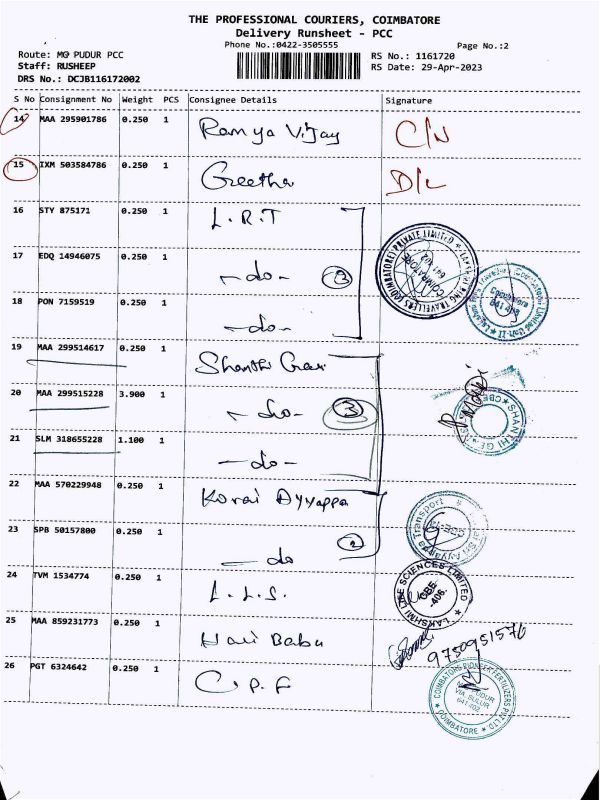 THE PROFESSIONAL COURIERS, COIMBATORE
Delivery Runsheet - PCC
Phone No.:0422-3505555 Page No.:2
Route: MG PUDUR PCC RS No.: 1161720
Staff: RUSHEEP RS Date: 29-Apr-2023
DRS No.: DCJB116172002
S No Consignment No Weight PCS Consignee Details Signature
14 MAA 295901786 0.250 1 Ramya Vijay C/N
15 IXM 503584786 0.250 1 Geetha D/L
16 STY 875171 0.250 1 L.R.T
17 EDQ 14946075 0.250 1 - do - 3
18 PON 7159519 0.250 1 - do -
19 MAA 299514617 0.250 1 Shanthi Gear
20 MAA 299515228 3.900 1 - do - 3
21 SLM 318655228 1.100 1 - do -
22 MAA 570229948 0.250 1 Korai Ayyappa
23 SPB 50157800 0.250 1 - do 2
24 TVM 1534774 0.250 1 L.L.S. LAKSHMI LIFE SCIENCES LIMITED CBE -406.
25 MAA 859231773 0.250 1 Hari Babu 9750951576
26 PGT 6324642 0.250 1 C.P.F COIMBATORE PIONEER FERTILIZERS PVT LTD. VIA. SULUR 641402 COIMBATORE